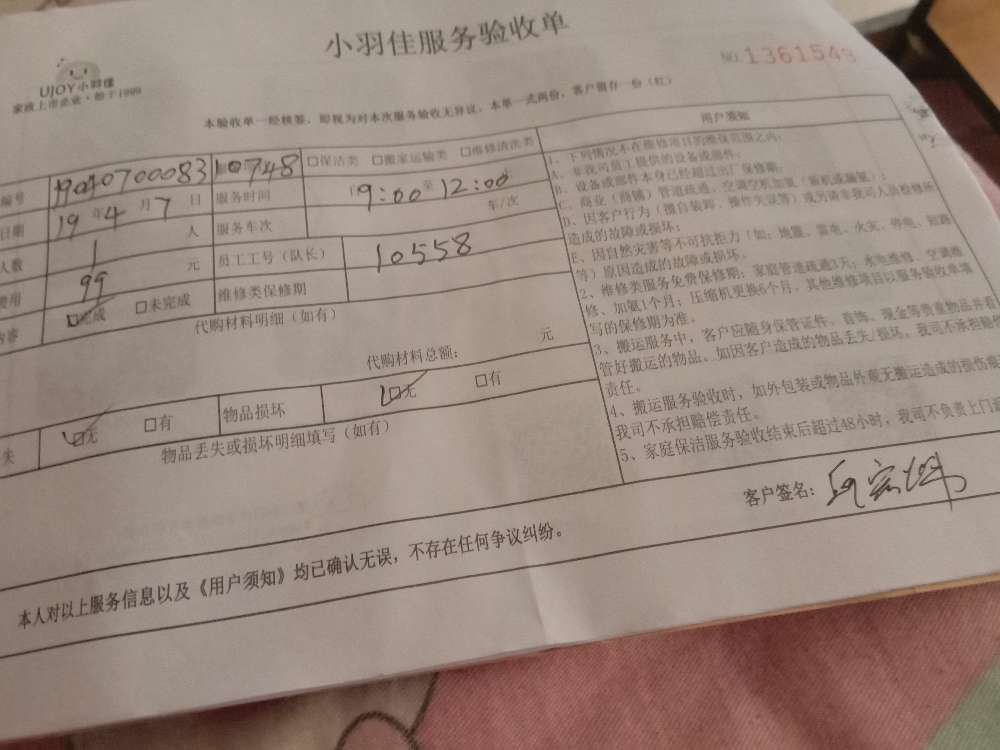 小羽佳服务验收单
UJOY小羽佳
家政上市企业·始于1999
NO.1361548
本验收单一经核签，即视为对本次服务验收无异议，本单一式两份，客户留存一份（红）
编号 1904070008310748 □保洁类 □搬家运输类 □维修清洗类
日期 19年4月7日 服务时间 9:00至12:00
人数 1人 服务车次 车/次
费用 99元 员工工号（队长） 10558
内容 □完成 □未完成 维修类保修期
代购材料明细（如有）
代购材料总额： 元
失 □无 □有 物品损坏 □无 □有
物品丢失或损坏明细填写（如有）
用户须知
1、下列情况不在维修项目的维保范围之内：
A、非我司员工提供的设备或部件；
B、设备或部件本身已经超过出厂保修期；
C、商业（商铺）管道疏通，空调空机加氟（新机或漏氟）；
D、因客户行为（擅自装卸、操作失误等）或另请非我司人员检修所
造成的故障或损坏；
E、因自然灾害等不可抗拒力（如：地震、雷电、火灾、停电、短路
等）原因造成的故障或损坏。
2、维修类服务免费保修期：家庭管道疏通3天；水电维修、空调维
修、加氟1个月；压缩机更换6个月，其他维修项目以服务验收单填
写的保修期为准。
3、搬运服务中，客户应随身保管证件、首饰、现金等贵重物品并看
管好搬运的物品。如因客户造成的物品丢失/损坏，我司不承担赔偿
责任。
4、搬运服务验收时，如外包装或物品外观无搬运造成的损伤痕
我司不承担赔偿责任。
5、家庭保洁服务验收结束后超过48小时，我司不负责上门
客户签名：
本人对以上服务信息以及《用户须知》均已确认无误，不存在任何争议纠纷。